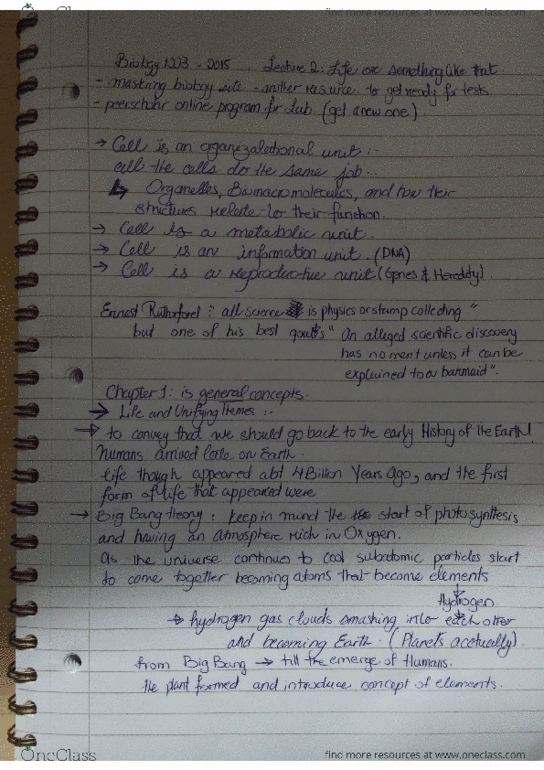 OneClass
find more resources at www.oneclass.com
Biology 1223 - 2015 .... Lecture 2: Life or something like that
- mastring biology site - another resource to get ready for tests.
- peerscholar online program for Lab. (get a new one)
→ Cell is an organizalational unit :-
all the cells do the same job...
↳ Organelles, Biomacromolecules, and how their
structures relate to their function.
→ Cell is a metabolic unit.
→ Cell is an information unit. (DNA)
→ Cell is a reproductive unit (Genes & Heredity).
Ernest Rutherford : all science is physics or stamp collecting "
but one of his best qouts " An alleged scientific discovery
has no merit unless it can be
explained to a barmaid ".
Chapter 1: is general concepts.
→ Life and Unifying themes :-
→ to convey that we should go back to the early History of the Earth!
humans arrived late on Earth.
life though appeared abt 4 Billion Years ago, and the first
form of life that appeared were
→ Big Bang theory : keep in mind the start of photosynthesis
and having an atmosphere rich in Oxygen.
as the universe continues to cool subatomic particles start
to come together becoming atoms that become elements
Hydrogen
→ hydrogen gas clouds smashing into each other
and becoming Earth. (Planets acctually).
from Big Bang → till the emerge of Humans.
the plant formed and introduce concept of elements.
OneClass
find more resources at www.oneclass.com